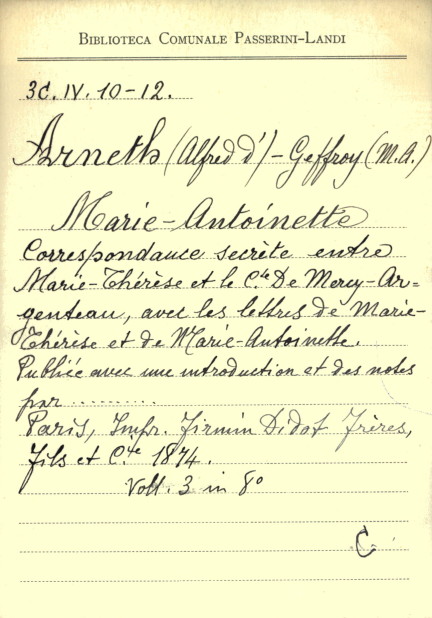 BIBLIOTECA COMUNALE PASSERINI-LANDI
3C. IV. 10-12.
Arneth (Alfred d') - Geffroy (M.A.)
Marie-Antoinette
Correspondance secrète entre
Marie-Thérèse et le C.te De Mercy-Ar=
genteau, avec les lettres de Marie-
Thérèse et de Marie-Antoinette.
Publiée avec une introduction et des notes
par .........
Paris, Impr. Firmin Didot Frères,
fils et C.ie 1874.
Voll. 3 in 8°
C